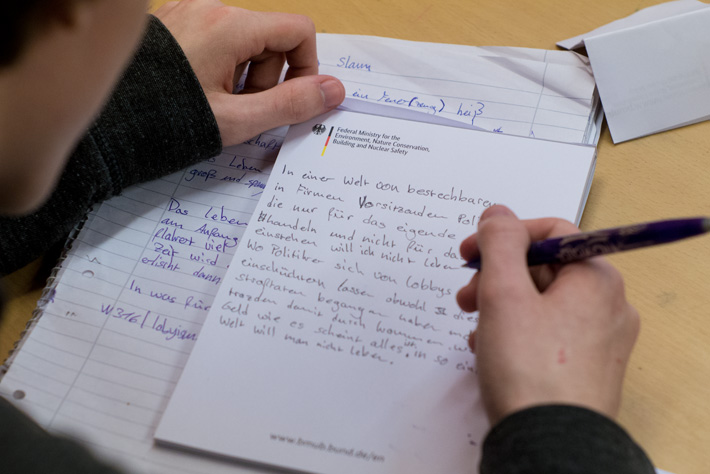 Slam
ein heiß
Federal Ministry for the
Environment, Nature Conservation,
Building and Nuclear Safety
In einer Welt von bestechbaren
in Firmen Vorsitzenden Poli
die nur für das eigende
handeln und nicht für da
einstehen will ich nicht leben
Wo Politiker sich von Lobbys
einschüchtern lassen obwohl diese
straftaten begangen haben
trozden damit durch kommen. W
Geld wie es scheint alles ist, in so ein
Welt will man nicht leben.
www.bmub.bund.de/en
schaft
Leben
groß und
Das Leben
am Anfang
flakert viel
Zeit wird
erlischt dann
In was für